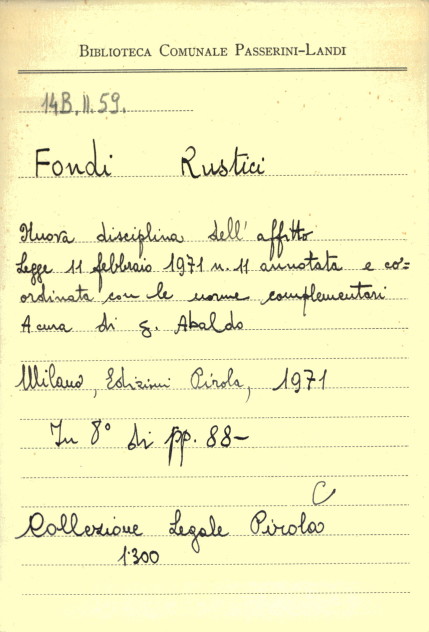 BIBLIOTECA COMUNALE PASSERINI-LANDI
14B.II.59.
Fondi Rustici
Nuova disciplina dell' affitto
Legge 11 febbraio 1971 n. 11 annotata e co=
ordinata con le norme complementari
A cura di G. Abaldo
Milano, Edizioni Pirola, 1971
In 8° di pp. 88-
C
Collezione Legale Pirola
1300